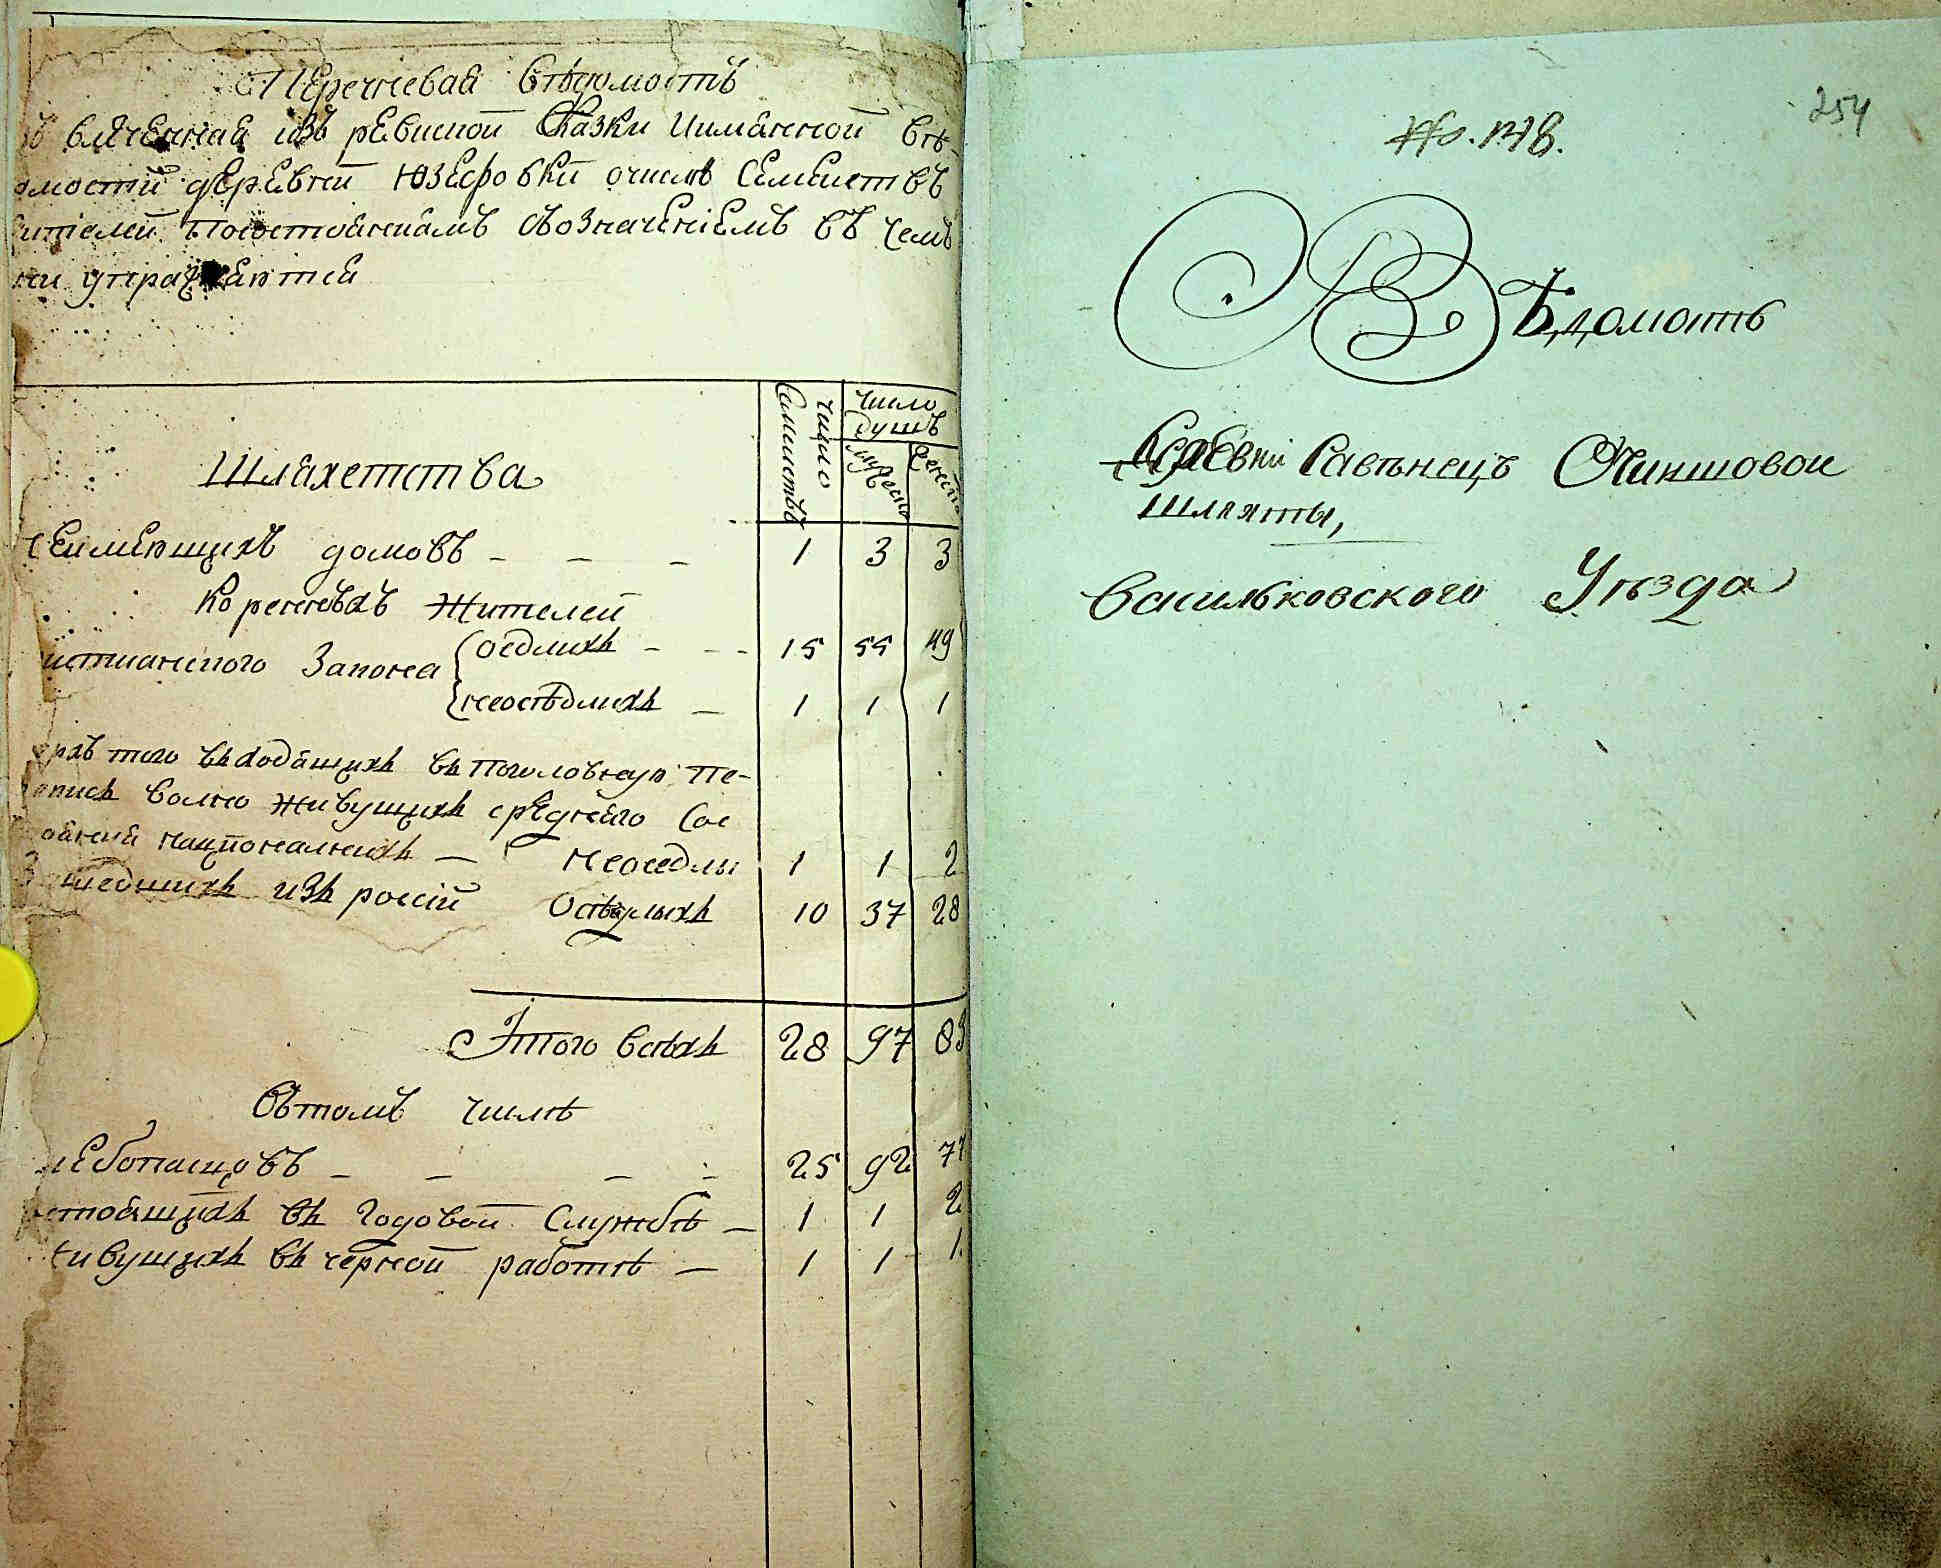 Перечневая вѣдомость
влеченная изъ ревиской сказки именной вѣ-
домостій деревни Юзефовки о числѣ семействъ
жителей посостояніямъ собозначеніемъ въ чемъ
они упражняются
Число семействъ
Число душъ
мужеска
женска
Шляхетства
неимеющихъ домовъ - - - 1 3 3
Коренныхъ жителей
христианского закона оседлихъ - - - 15 55 49
неоседлихъ - 1 1 1
сверхъ того входящихъ въ поголовную пе-
репись волно живущихъ средняго сос-
тояний национальнихъ - неоседлы 1 1 2
Зашедшихъ изъ россій осѣдлыхъ 10 37 28
Итого всѣхъ 28 97 83
Вътомъ числѣ
хлебопашцовъ - - - - 25 92
состоящихъ въ годовой службѣ - 1 1 2
живущихъ въ черной работѣ - 1 1 1.
254
No. 1218.
Вѣдомость
Деревни Савѣнецъ Чиншовои
Шляхты,
Васильковского Уѣзда